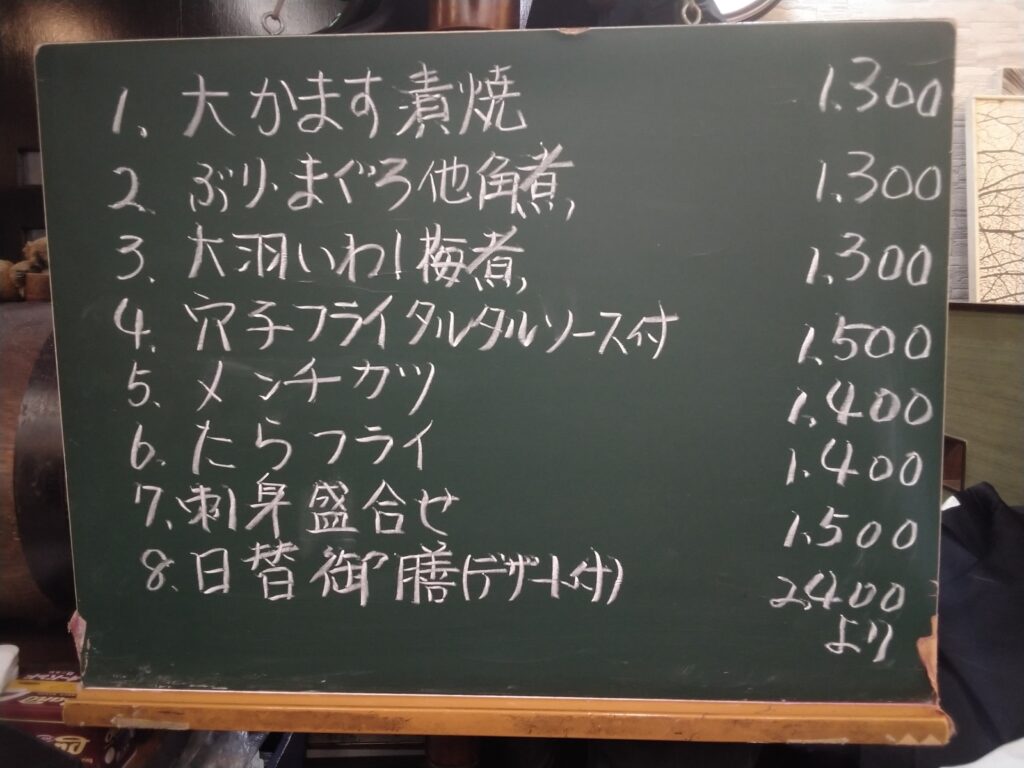 1、大かます漬焼 1.300
2、ぶり・まぐろ他角煮 1.300
3、大羽いわし梅煮 1.300
4、穴子フライタルタルソース付 1.500
5、メンチカツ 1.400
6、たらフライ 1.400
7、刺身盛合せ 1.500
8、日替御膳(デザート付) 2.400
より